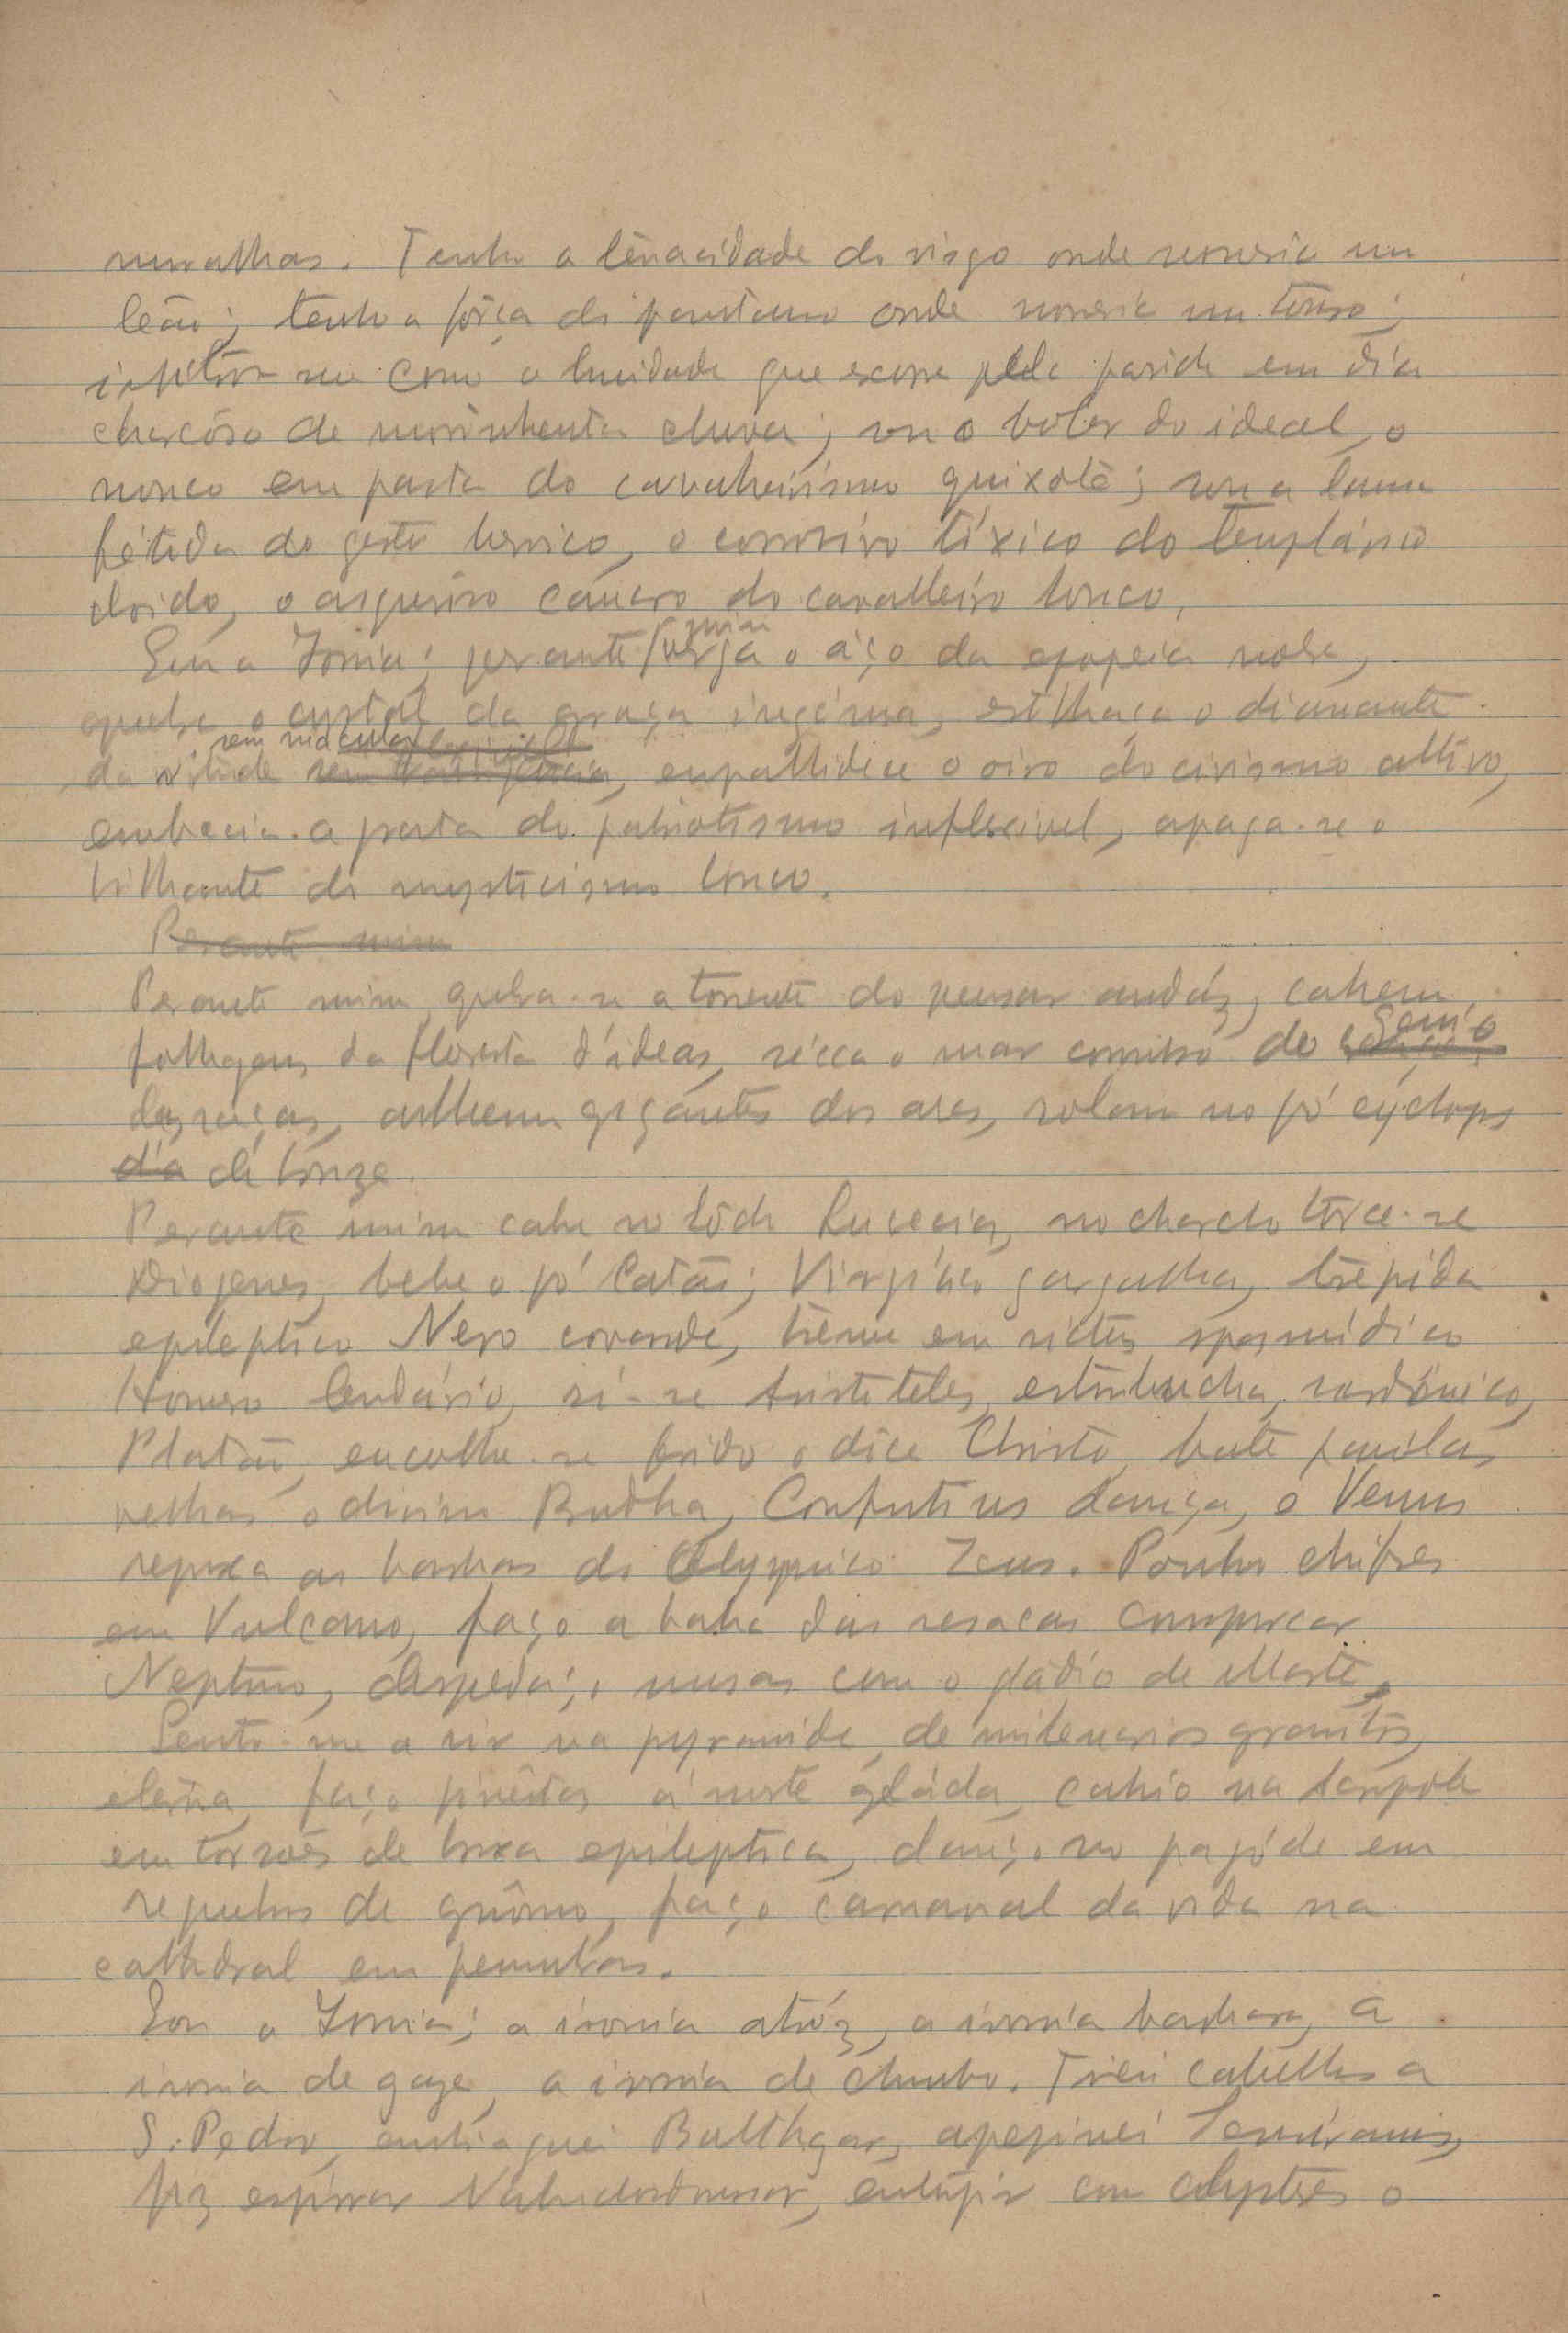 muralhas. Tenho a tenacidade do visgo onde morreria um
leão; tenho a fôrça do pantano onde morreria um touro;
infiltro-me como a humidade que escorre pela parede em dia
de chuva; sou o bolor do ideal, o
monco em pasta do cavalheirismo quixote; sou a lama
fétida do gesto heroico, o corrosivo tóxico do templário
doido, o asqueroso cancro do cavalleiro louco.
Sou a Ironia; perante mim verga o aço da epopeia nobre,
quebra o crystal da graça ingénua, estilhaça o diamante
da virtude sem macula, empallidece o oiro do civismo altivo,
embacia a prata do patriotismo inflexivel, apaga-se o
brilhante do mysticismo louco.
Perante mim
Perante mim quebra-se a torrente do pensar audáz, cahem
folhagens da floresta d'ideas, sécca o mar convulso do Genio
das raças, gigantes dos ares, rolam no pó cýclops
d'a de bronze.
Perante mim cahe no lôdo Lucrecia, no charco torce-se
Diogenes, bebe o pó Catão; Virgilio gargalha, trepida
epileptico Nero covarde, treme em rictus spasmódico
Homero lendário, ri-se Aristoteles, estrebucha, sardónico,
Platão, encolhe-se ferido o dôce Christo, bate
velhas o divino Budha, Confutius dança, e Venus
repuxa as barbas do Olympico Zeus. Ponho chifres
em Vulcano, faço a baba das resacas conspurcar
Neptuno, despedaço musas com o gládio de Marte.
Sento-me a rir na pyramide de milenarios granitos
eterna, faço piruêtas á morte geláda, cahio na
em torsões de bruxa epileptica, danço no pagóde em
repuchos de gnômo, faço carnaval da vida na
cathedral em penumbras.
Sou a Ironia; a ironia atróz, a ironia barbara, a
ironia de gaze, a ironia de chumbo. Tirei cabellos a
S. Pedro, embriaguei Balthazar, apepinei Semíramis,
fiz espirrar Nabuchodonosor, entupir com clysteres o